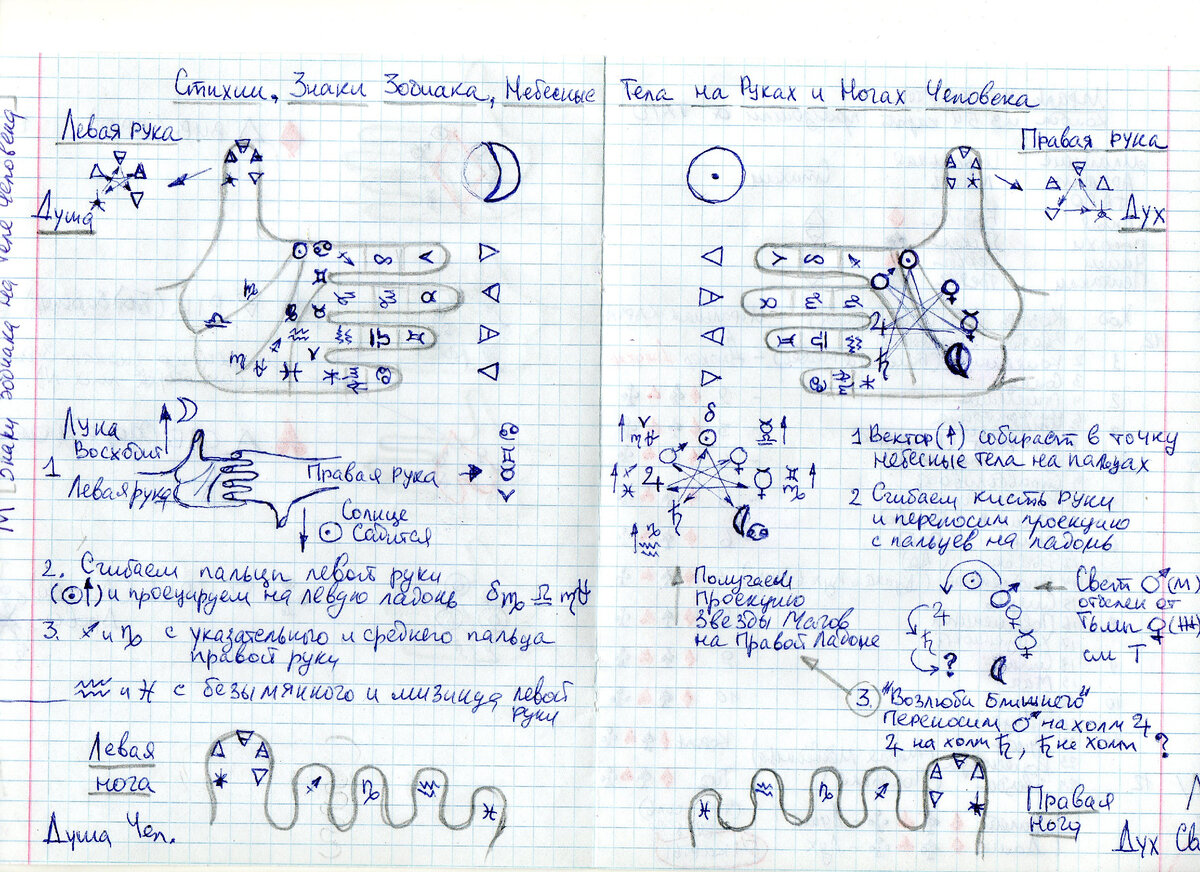 Стихии, Знаки Зодиака, Небесные Тела на Руках и Ногах Человека
Левая рука
Душа
Правая рука
Дух
Знаки зодиака на теле человека
М
Луна
Восходит
1
Левая рука
Правая рука
Солнце
☉ Садится
2. Сгибаем пальцы левой руки
(☉↑) и проецируем на левую ладонь ♌♍♎♏
3. ♐ и ♑ с указательного и среднего пальца
правой руки
♒ и ♓ с безымянного и мизинца левой
руки
Левая
нога
Душа Чел.
1 Вектор(↑) собирает в точку
небесные тела на пальцах
2 Сгибаем кисть руки
и переносим проекцию
с пальцев на ладонь
Получаем
Проекцию
Звезды Магов
на Правой Ладоне
Свет ♂ (М)
отделен от
Тьмы ♀ (Ж)
см Т
3. "Возлюби ближнего"
Переносим ♂ на холм ♃
♃ на холм ♄, ♄ не холм ?
Правая
нога
Дух Св